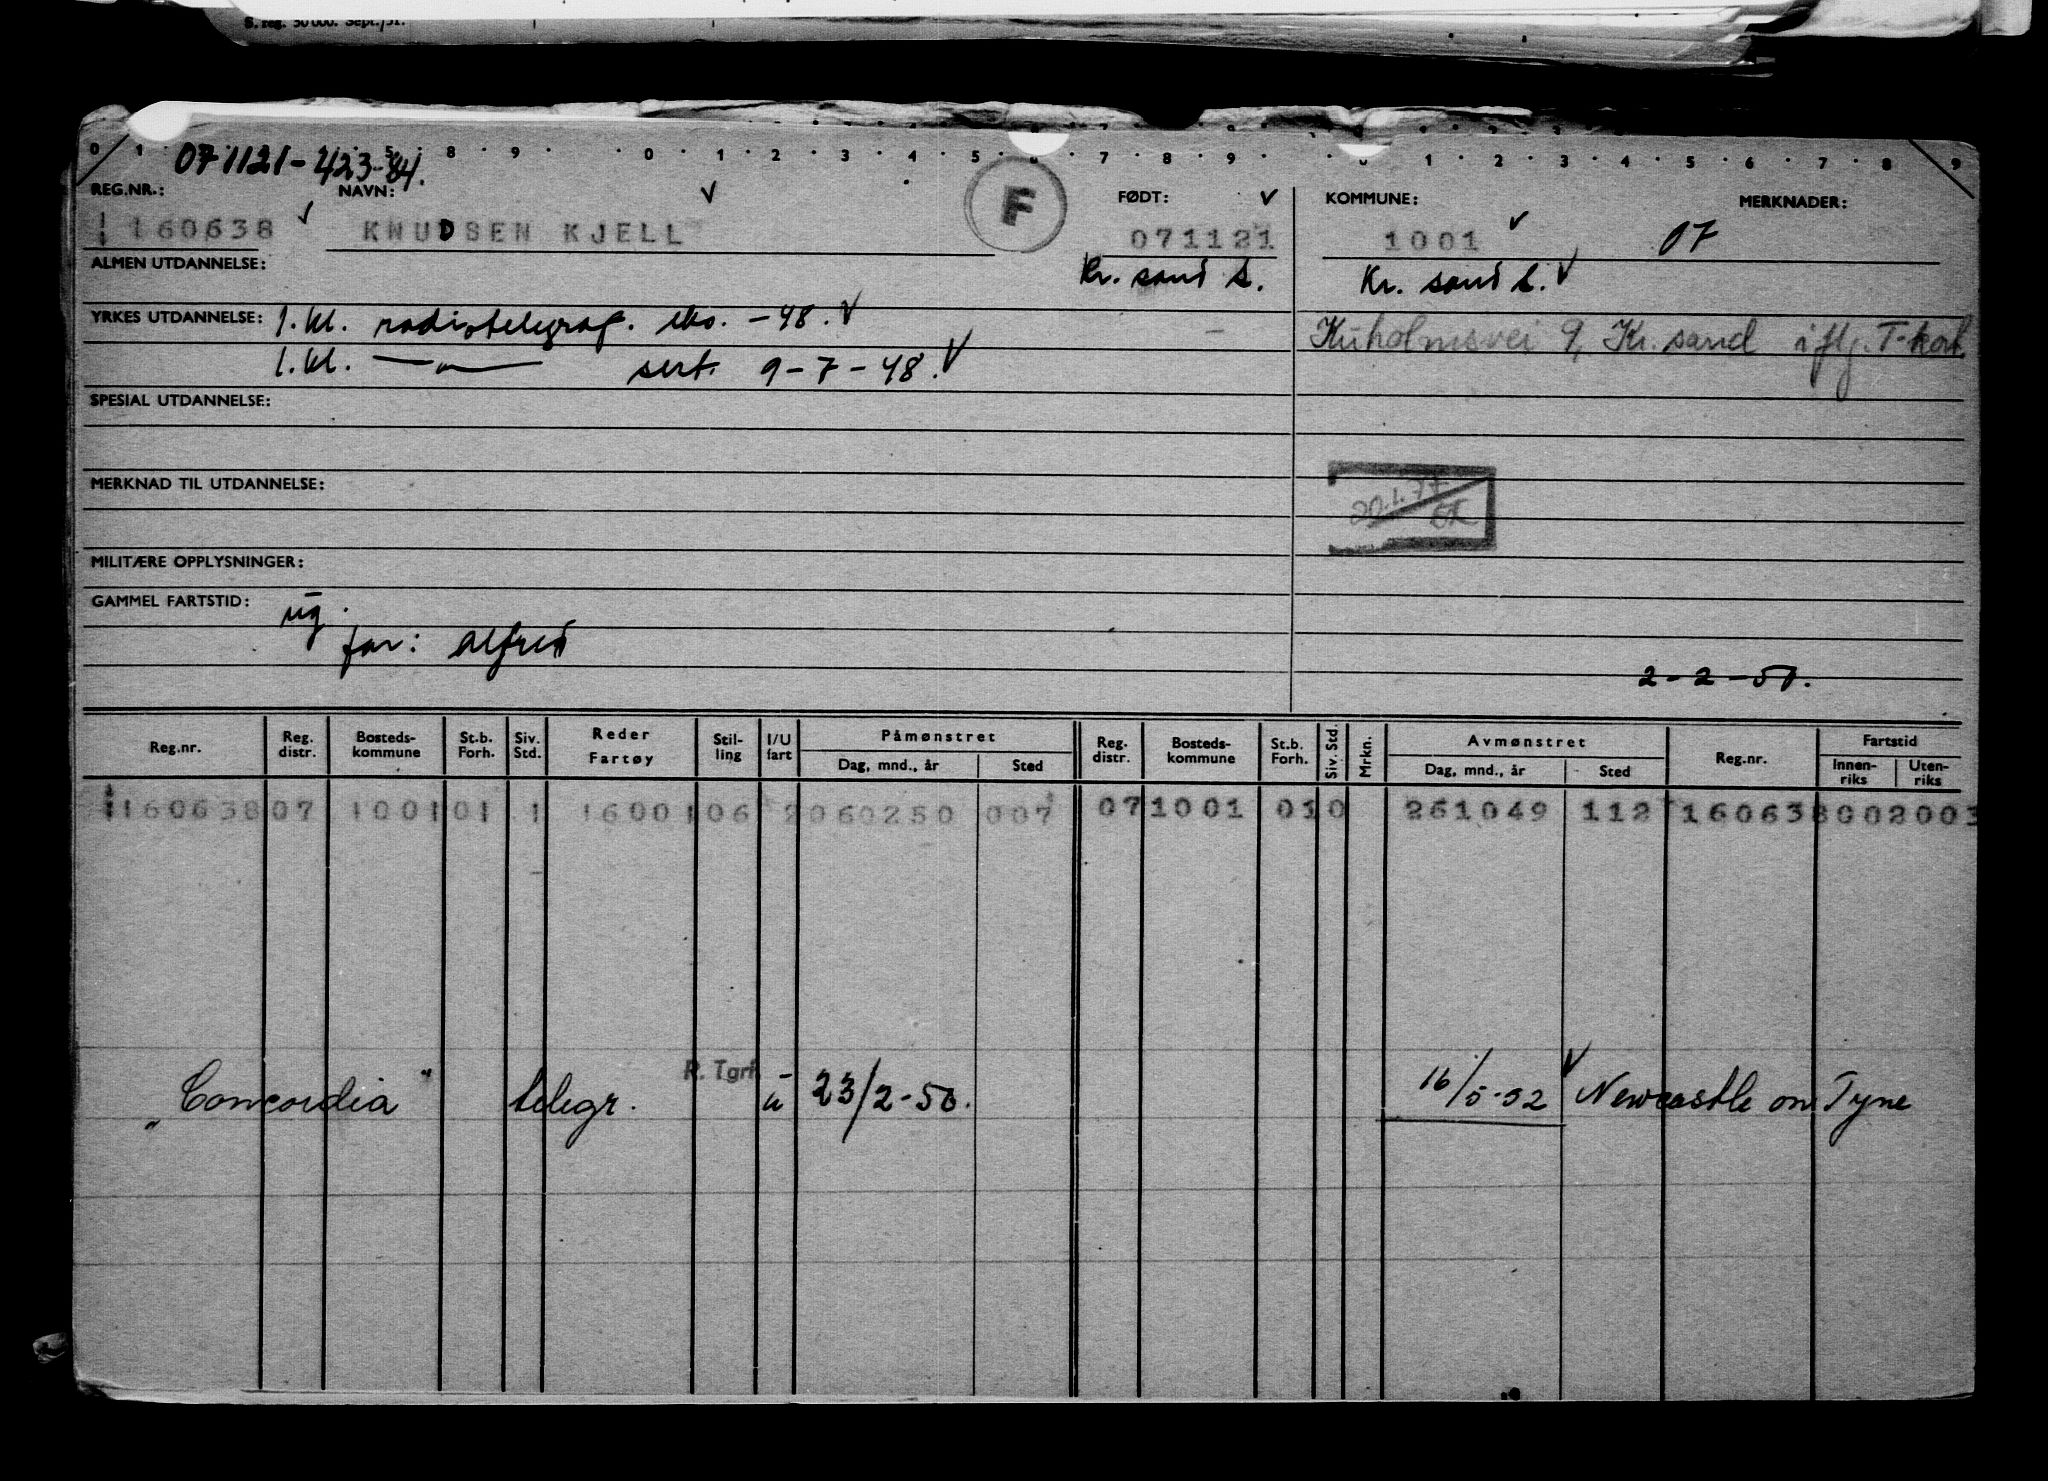 S. reg. 50 000. Sept./51.
0 1 5 8 9 0 1 2 3 4 5 6 7 8 9 0 1 2 3 4 5 6 7 8 9
071121-42384.
REG.NR.: NAVN: FØDT: KOMMUNE: MERKNADER:
160638 KNUDSEN KJELL F 071121 1001 07
ALMEN UTDANNELSE: Kr. sand S. Kr. sand S.
YRKES UTDANNELSE: 1. kl. radiotelegraf. eks. - 48.
Kuholmsvei 9, Kr. sand iflg. T-kort
1. kl. — " — sert. 9-7-48.
SPESIAL UTDANNELSE:
MERKNAD TIL UTDANNELSE:
20.1.77
MILITÆRE OPPLYSNINGER:
GAMMEL FARTSTID: ug.
far: Alfred
2-2-50.
Reg.nr. Reg. distr. Bosteds- kommune St.b. Forh. Siv. Std. Reder Fartøy Stil- ling I/U fart Påmønstret Dag, mnd., år Sted Reg. distr. Bosteds- kommune St.b. Forh. Siv. Std. Mrkn. Avmønstret Dag, mnd., år Sted Reg.nr. Fartstid Innen- riks Uten- riks
160638 07 1001 01 1 16001 06 2 060250 007 07 1001 01 0 261049 112 160638 002003
R. Tgrf.
"Concordia" telegr. u 23/2-50. 16/5-52 Newcastle on Tyne